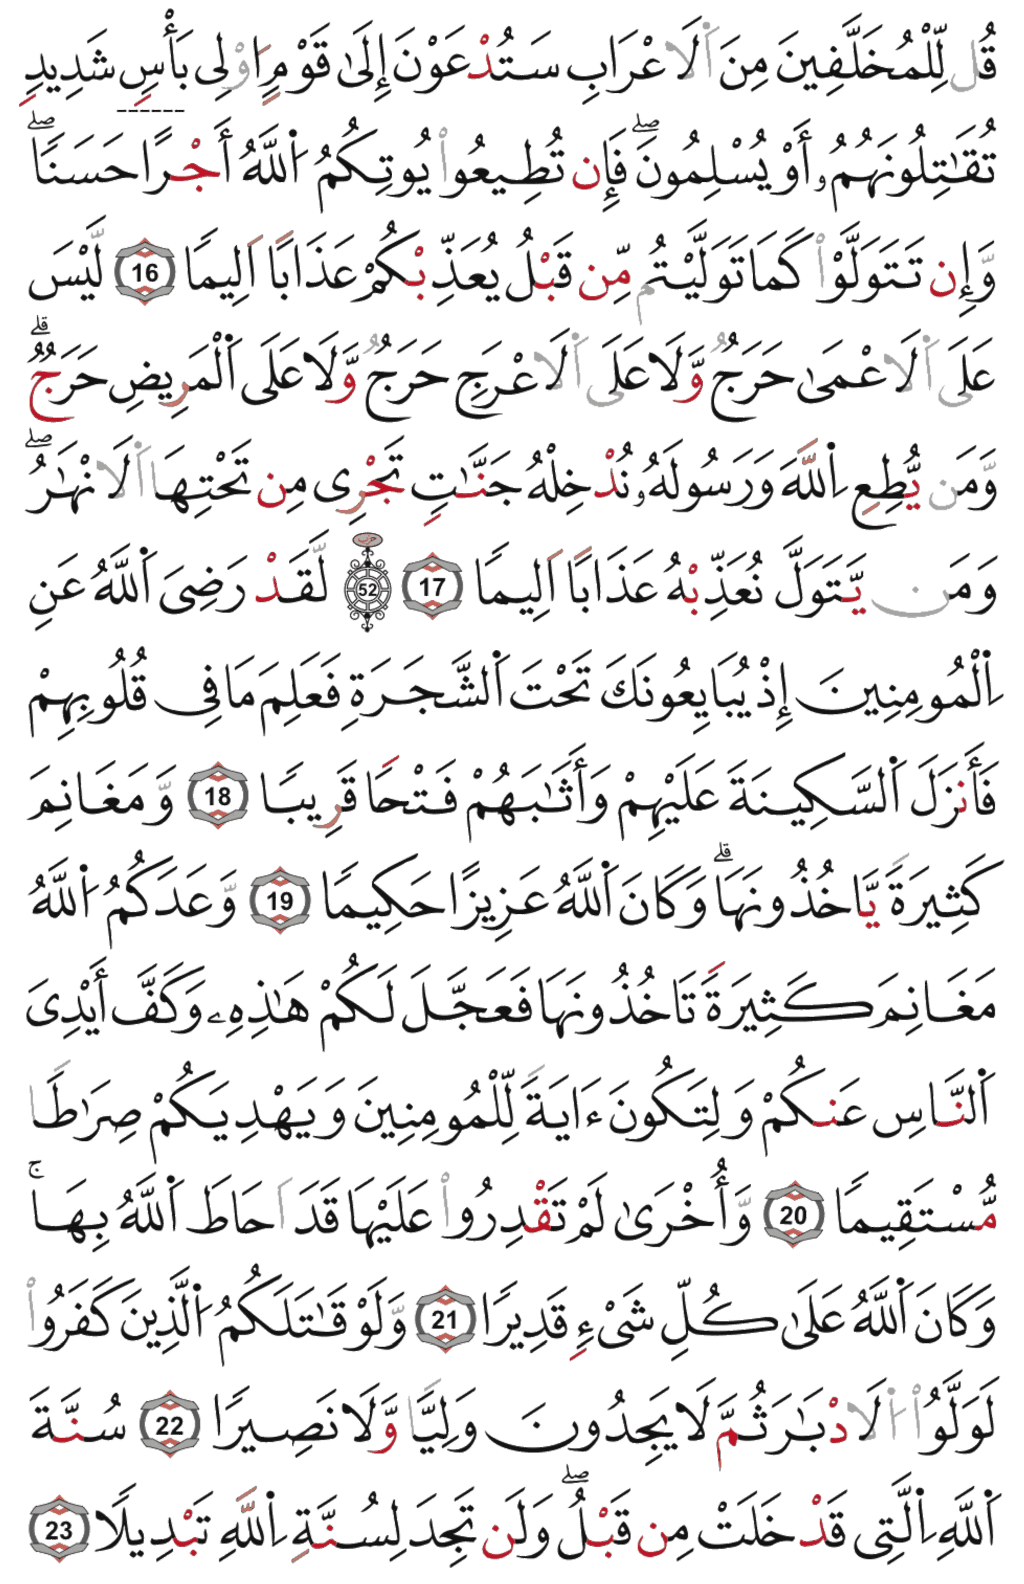 قُل لِّلْمُخَلَّفِينَ مِنَ اَ۬لَاعْرَابِ سَتُدْعَوْنَ إِلَىٰ قَوْمٍ ا۟وْلِى بَأْسٍ شَدِيدٍ
تُقَٰتِلُونَهُمُۥٓ أَوْ يُسْلِمُونَۖ فَإِن تُطِيعُوا۟ يُوتِكُمُ اُ۬للَّهُ أَجْرًا حَسَنًاۖ
وَإِن تَتَوَلَّوْا۟ كَمَا تَوَلَّيْتُم مِّن قَبْلُ يُعَذِّبْكُمْ عَذَابًا اَلِيمًا 16 لَّيْسَ
عَلَى اَ۬لَاعْمَىٰ حَرَجٌ وَّلَا عَلَى اَ۬لَاعْرَجِ حَرَجٌ وَّلَا عَلَى اَ۬لْمَرِيضِ حَرَجٌۗ
وَّمَن يُّطِعِ اِ۬للَّهَ وَرَسُولَهُۥ نُدْخِلْهُ جَنَّٰتٍ تَجْرِى مِن تَحْتِهَا اَ۬لَانْهَٰرُۖ
وَمَن يَّتَوَلَّ نُعَذِّبْهُ عَذَابًا اَلِيمًا 17 حزب 52 لَّقَدْ رَضِىَ اَ۬للَّهُ عَنِ
اِ۬لْمُومِنِينَ إِذْ يُبَايِعُونَكَ تَحْتَ اَ۬لشَّجَرَةِ فَعَلِمَ مَا فِى قُلُوبِهِمْ
فَأَنزَلَ اَ۬لسَّكِينَةَ عَلَيْهِمْ وَأَثَٰبَهُمْ فَتْحًا قَرِيبًا 18 وَّمَغَانِمَ
كَثِيرَةً يَّاخُذُونَهَاۗ وَكَانَ اَ۬للَّهُ عَزِيزًا حَكِيمًا 19 وَّعَدَكُمُ اُ۬للَّهُ
مَغَانِمَ كَثِيرَةً تَاخُذُونَهَا فَعَجَّلَ لَكُمْ هَٰذِهِۦ وَكَفَّ أَيْدِىَ
اَ۬لنَّاسِ عَنكُمْ وَلِتَكُونَ ءَايَةً لِّلْمُومِنِينَ وَيَهْدِيَكُمْ صِرَٰطًا
مُّسْتَقِيمًا 20 وَّأُخْرَىٰ لَمْ تَقْدِرُوا۟ عَلَيْهَا قَدَ اَحَاطَ اَ۬للَّهُ بِهَاۚ
وَكَانَ اَ۬للَّهُ عَلَىٰ كُلِّ شَىْءٍ قَدِيرًا 21 وَّلَوْ قَٰتَلَكُمُ اُ۬لَّذِينَ كَفَرُوا۟
لَوَلَّوُا۟ اُ۬لَادْبَٰرَ ثُمَّ لَا يَجِدُونَ وَلِيًّا وَّلَا نَصِيرًا 22 سُنَّةَ
اَ۬للَّهِ اِ۬لَّتِى قَدْ خَلَتْ مِن قَبْلُۖ وَلَن تَجِدَ لِسُنَّةِ اِ۬للَّهِ تَبْدِيلًا 23